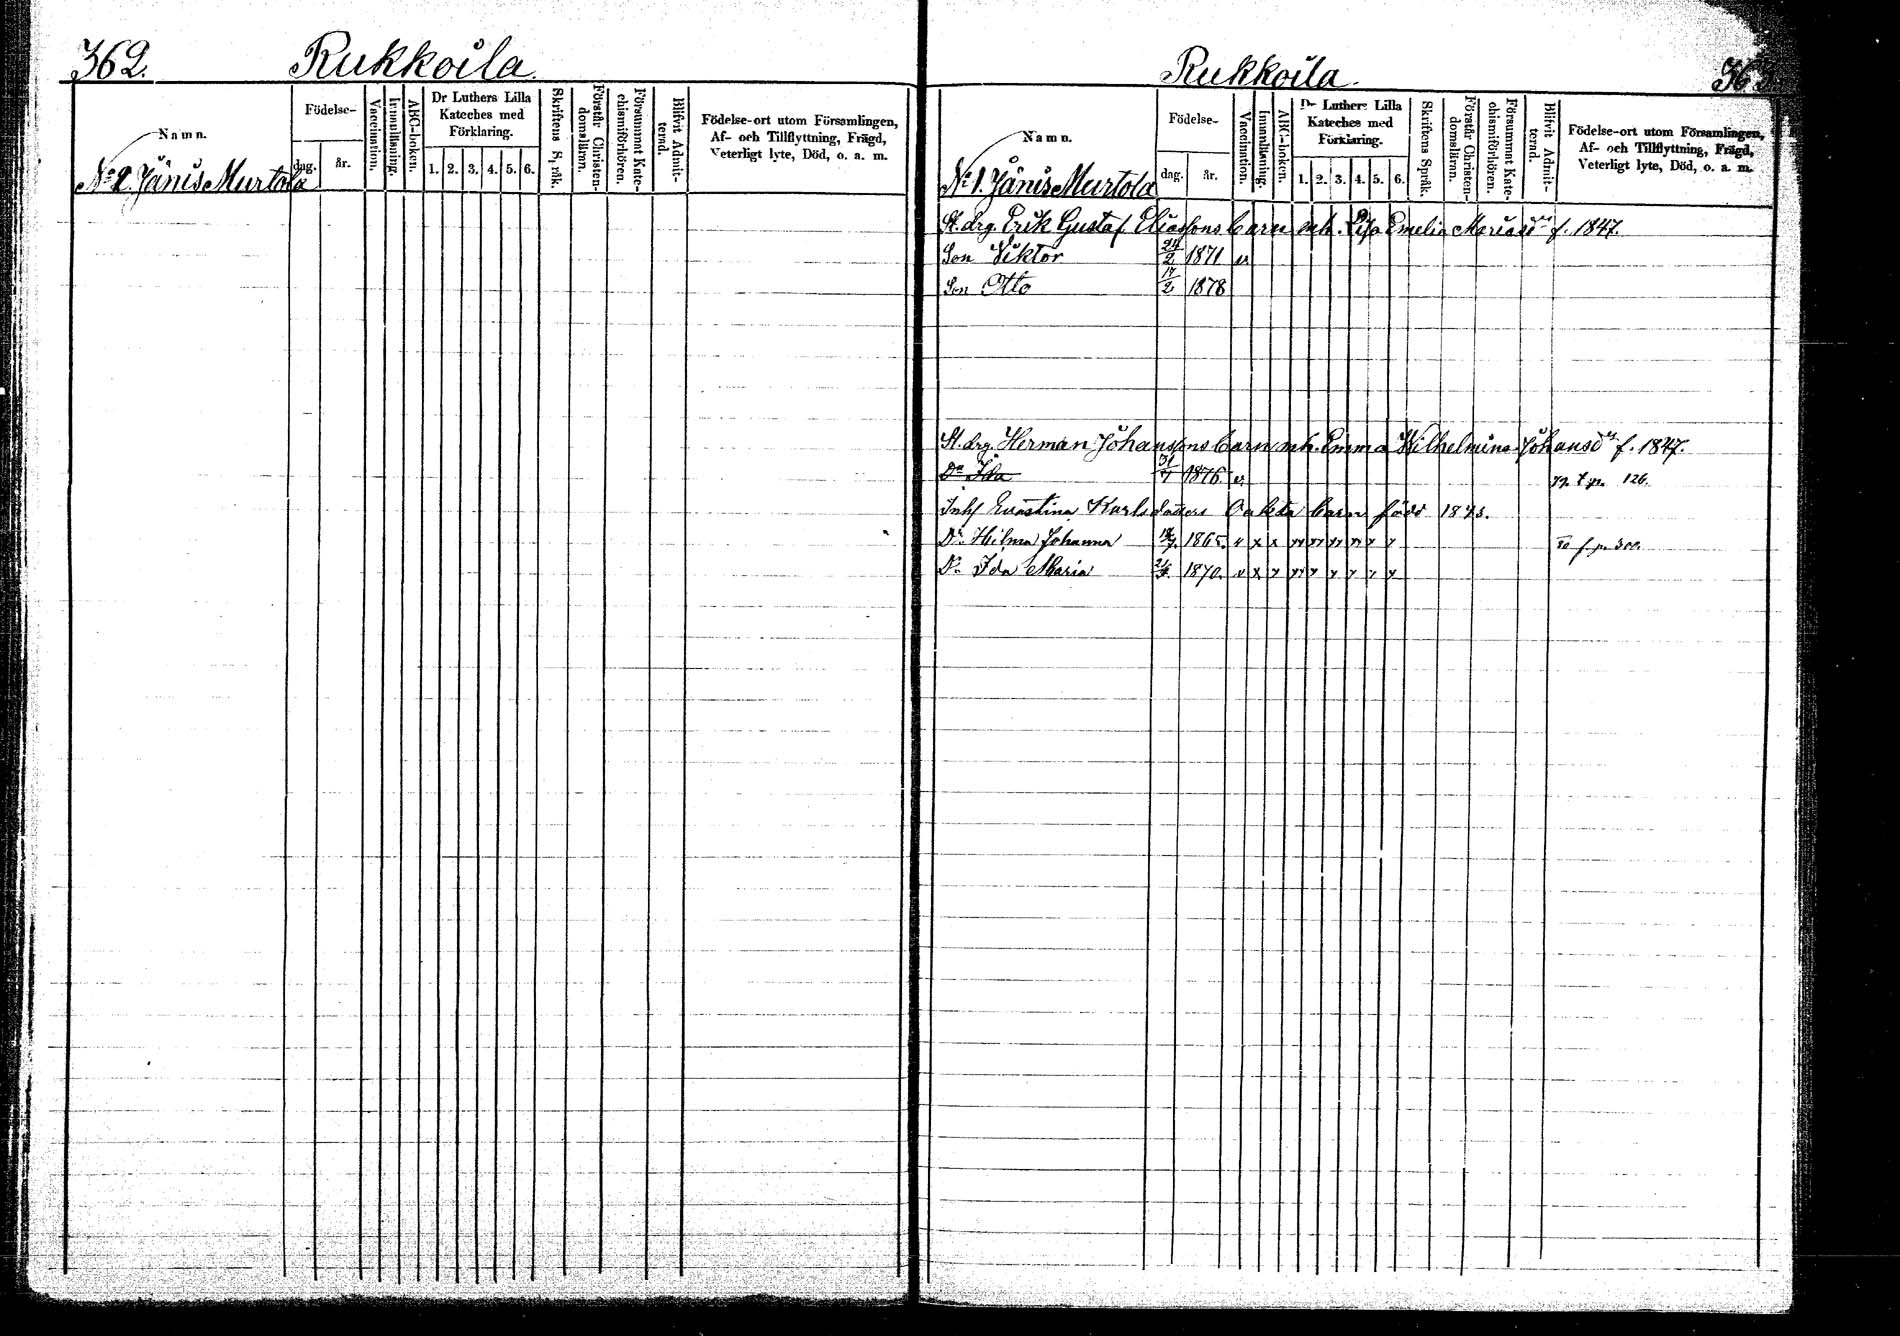 362. Rukkoila.
Namn.
Födelse-
dag. år.
Vaccination.
Innanläsning.
ABC-boken.
Dr Luthers Lilla
Kateches med
Förklaring.
1. 2. 3. 4. 5. 6.
Skriftens Språk.
Förstår Christen-
domslärnn.
Försummt Kate-
chismiförhören.
Blifvit Admit-
terad.
Födelse-ort utom Församlingen,
Af- och Tillflyttning, Frägd,
Veterligt lyte, Död, o. a. m.
No 2. Jänis Murtola
Rukkoila. 363.
Namn.
Födelse-
dag. år.
Vaccination.
Innanläsning.
ABC-boken.
Dr Luthers Lilla
Kateches med
Förklaring.
1. 2. 3. 4. 5. 6.
Skriftens Språk.
Förstår Christen-
domslärnn.
Försummt Kate-
chismiförhören.
Blifvit Admit-
terad.
Födelse-ort utom Församlingen,
Af- och Tillflyttning, Frägd,
Veterligt lyte, Död, o. a. m.
No 1. Jänis Murtola
St. drg. Erik Gustaf Eliassons barn mh. Lisa Emelia Mariasdr f. 1847.
Son Viktor 24/2 1871 v
Son Otto 17/2 1878
St. drg. Herman Johanssons barn mh. Emma Wilhelmina Johansdr f. 1847.
Dr Ida 1876. v 126.
Inhs Karlsdotters Oäkta barn född 1843.
Dr Hilma Johanna 1865. v x x f. p. 300.
Dr Ida Maria 1870. v x